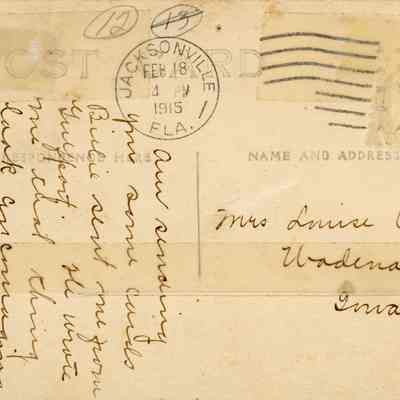 12 13
POST CARD
JACKSONVILLE
FEB 18
4 PM
1915
FLA.
CORRESPONDENCE HERE
NAME AND ADDRESS
Am sending
you some cards
Billie sent me from
Gulfport He wrote
me that thing
look
Mrs Louise
Wadena
Iowa